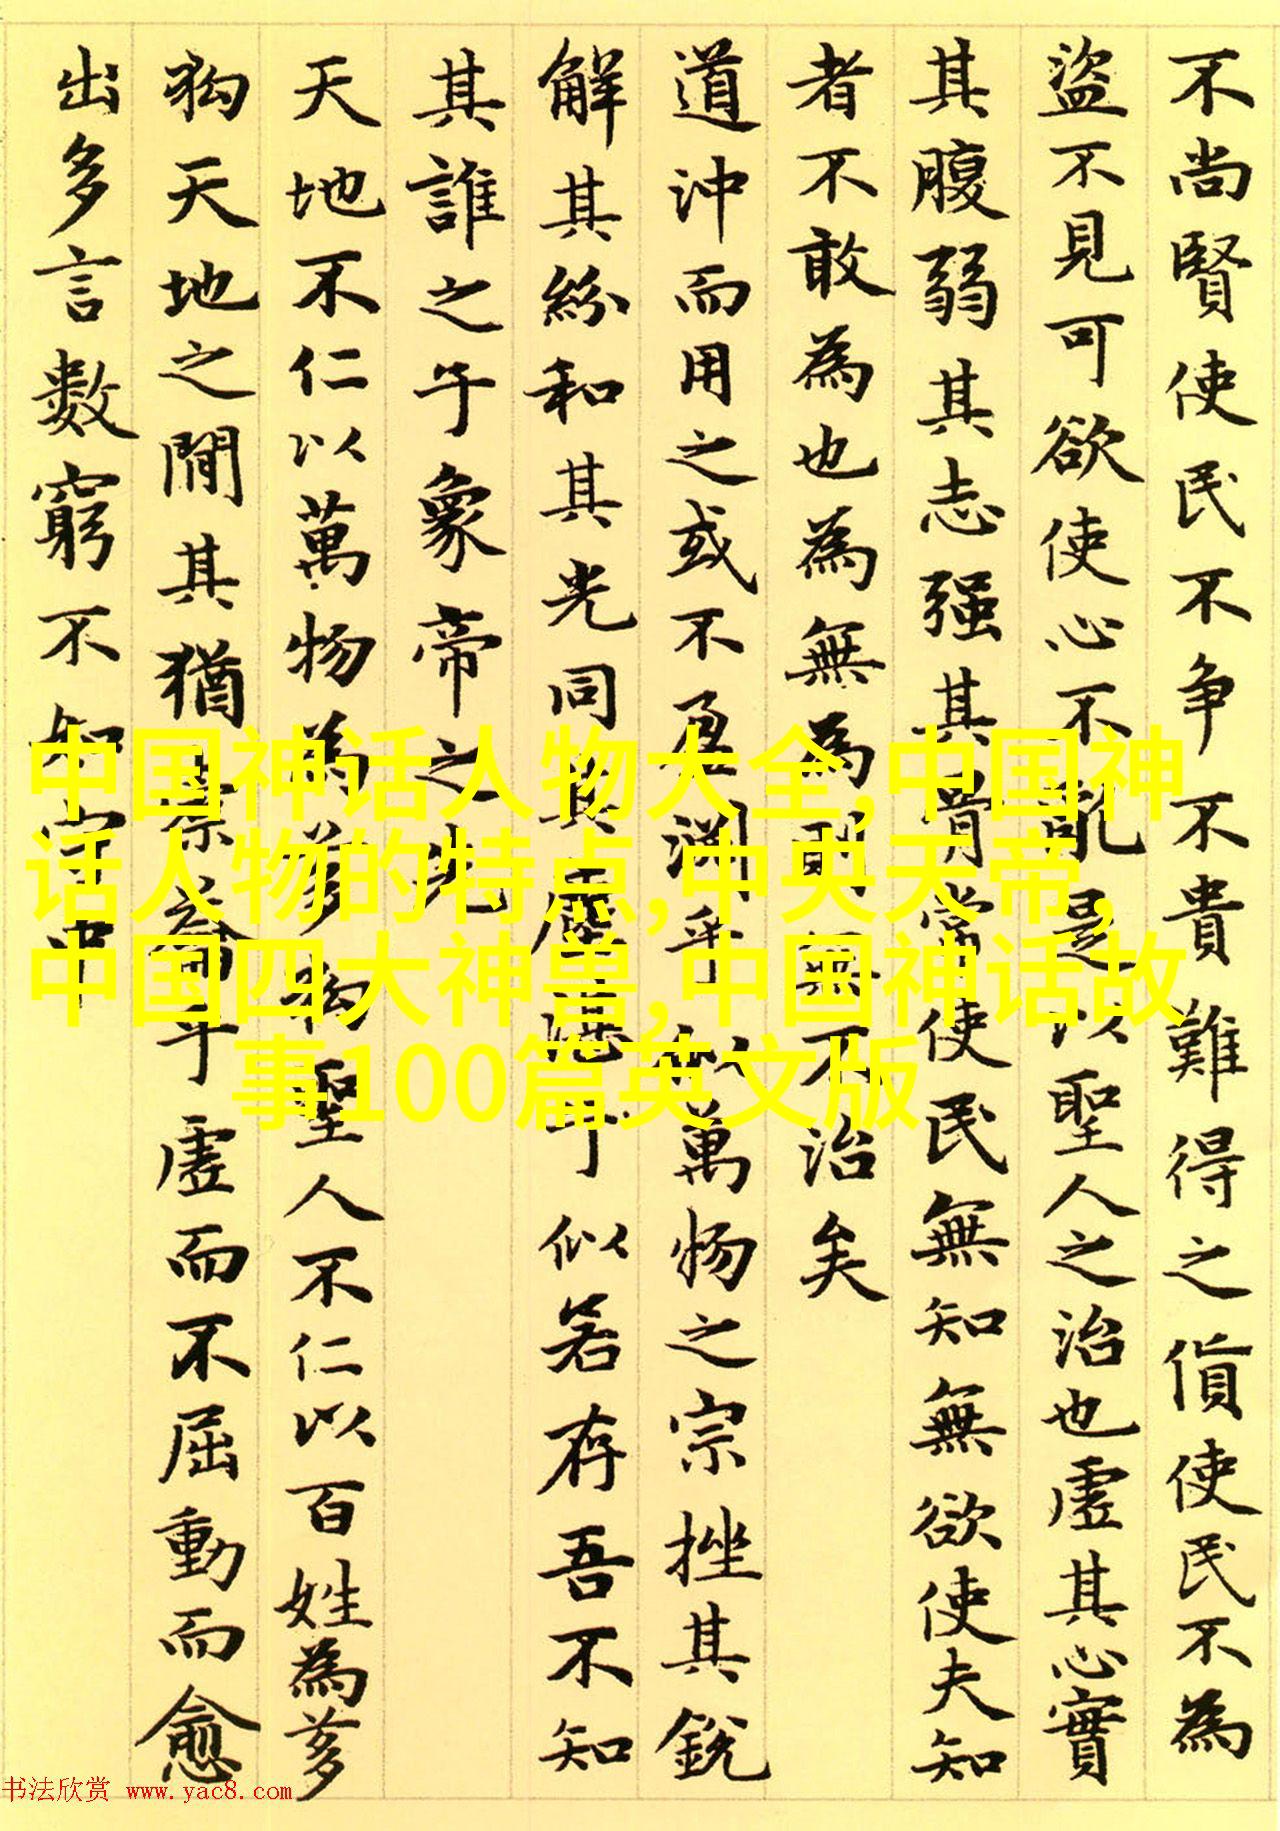 不尚賢使民不争不貴難得之貨使民不為
盜不見可欲使心不亂是以聖人之治也虛其心實
其腹弱其志强其骨常使民無知無欲使夫知
者不敢為也為無為則無不治矣
道沖而用之或不盈渊乎似萬物之宗挫其銳
解其紛和其光同其塵湛乎似若存吾不知
其誰之子象帝之先
天地不仁以萬物為芻狗聖人不仁以百姓為芻
狗天地之間其猶橐籥乎虛而不屈動而愈
出多言數窮不如守中
中国神话人物大全,中国神
话人物的特点,中央天帝,
中国四大神兽,中国神话故
事100篇英文版
书法欣赏 www.yac8.com